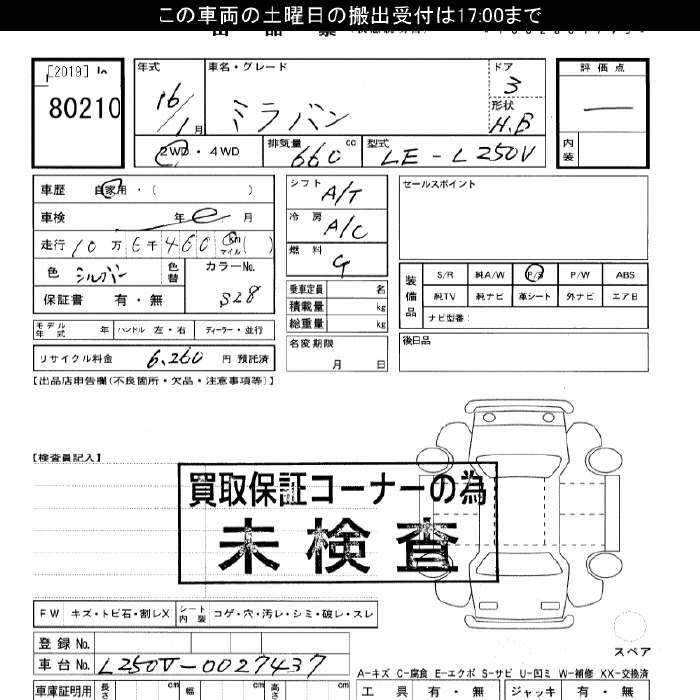 この車両の土曜日の搬出受付は17:00まで
[2019] In
80210
年式 16/1月
車名・グレード
ミラバン
ドア 3
形状 H.B
評価点
—
内装
2WD・4WD
排気量 660 cc
型式 LE-L250V
車歴 自家用・( )
車検 年 月
走行 10万6千460 km マイル ( )
色 シルバー 色替
カラーNo. S28
保証書 有・無
シフト A/T
冷房 A/C
燃料 G
乗車定員 名
積載量 kg
総重量 kg
セールスポイント
装備品
S/R 純A/W P/S P/W ABS
純TV 純ナビ 革シート 外ナビ エアB
ナビ型番:
モデル年式 年 ハンドル 左・右 ディーラー・並行
名変期限 月 日
後日品
リサイクル料金 6,260 円 預託済
【出品店申告欄(不良箇所・欠品・注意事項等)】
【検査員記入】
買取保証コーナーの為
未検査
FW キズ・トビ石・割レX シート内装 コゲ・穴・汚レ・シミ・破レ・スレ
登録No.
スペア
車台No. L250V-0027437
A-キズ C-腐食 E-エクボ S-サビ U-凹ミ W-補修 XX-交換済
車庫証明用 長さ cm 幅 cm 高さ cm
工具 有・無 ジャッキ 有・無